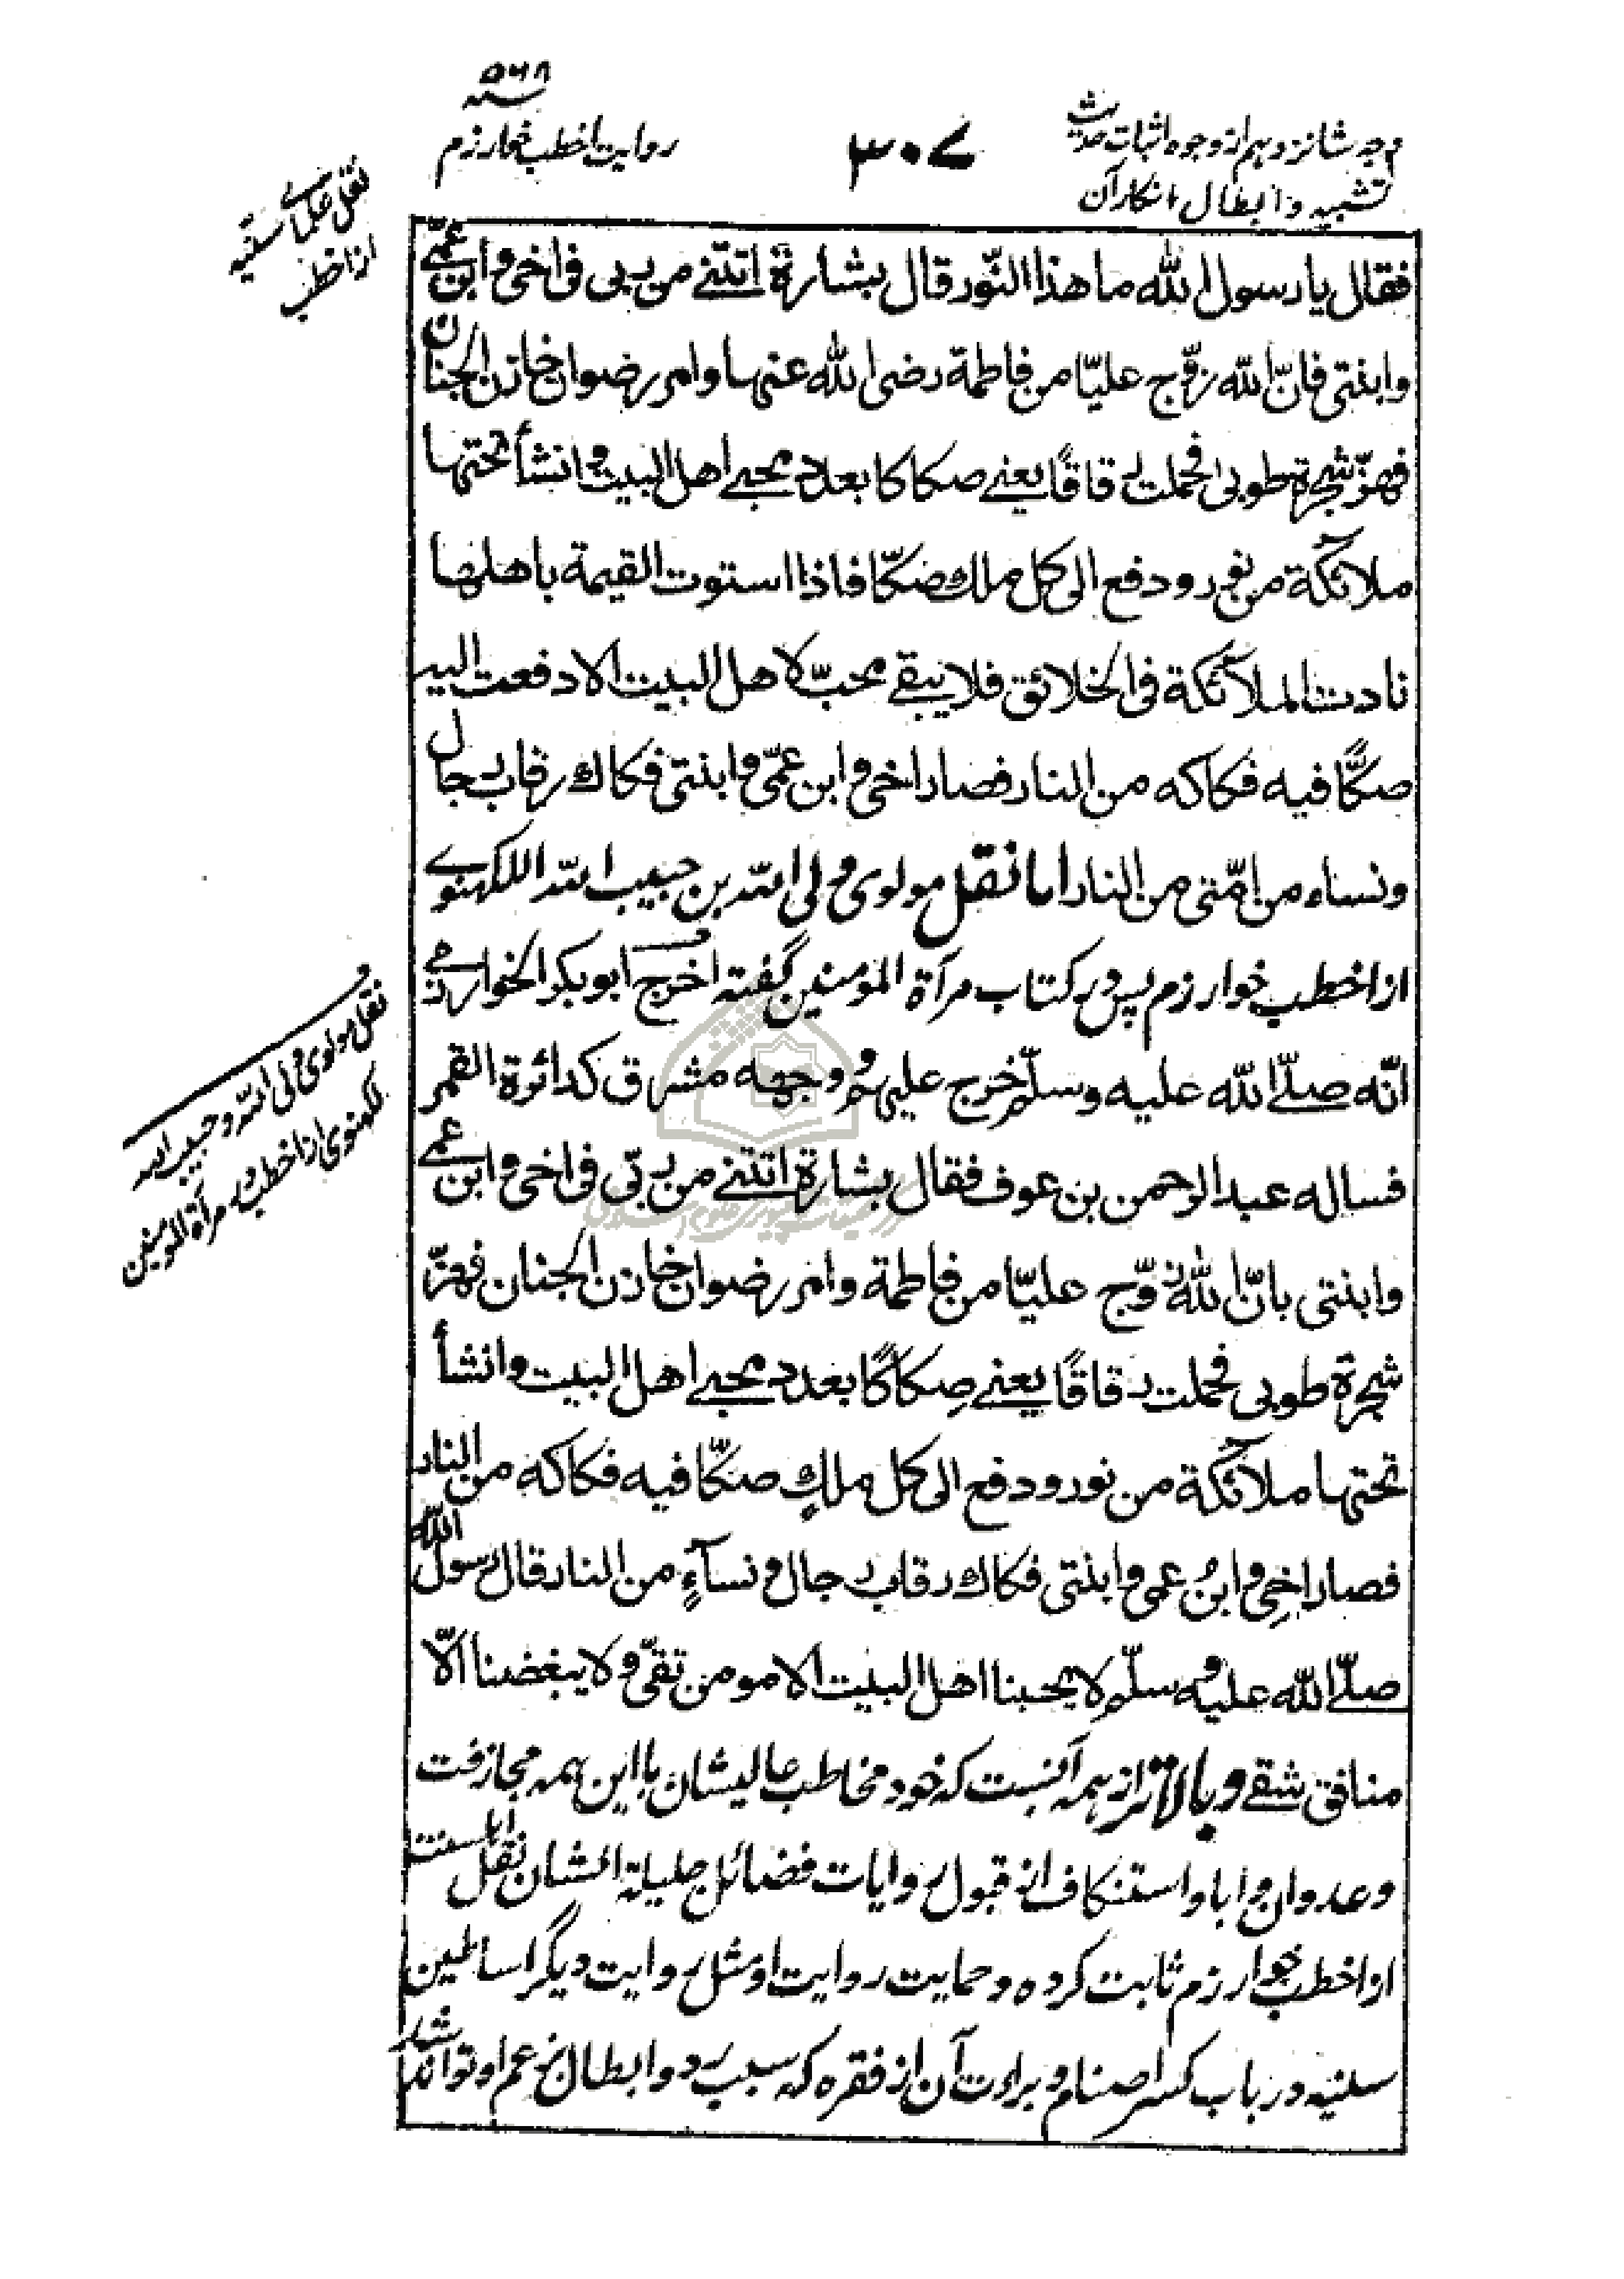 وجه شانزدهم از وجوه اثبات حدیث
تشبیه و ابطال انکار آن
۳۰۷
روایت اخطب خوارزم
سنه ۵۶۸
نقل علمای سنیه
از اخطب
فقال یا رسول الله ما هذا النّور قال بشارة اتتنے من ربی فی اخی و ابن عمّی
و ابنتی فانّ الله زوّج علیّا من فاطمة رضی الله عنها و امر رضوان خازن الجنان
فهزّ شجرة طوبی فحملت رقاقًا یعنے صکاکا بعدد محبّے اهل البیت و انشأ تحتها
ملائکة من نور و دفع الی کل ملك صکّا فاذا استوت القیمة باهلها
نادت الملآئکة فی الخلائق فلا یبقے محبّ لاهل البیت الا دفعت الیه
صکًّا فیه فکاکه من النار فصار اخی و ابن عمّی و ابنتی فکاك رقاب رجال
و نساء من امّتی من النار اما نقل مولوی ولی الله بن حبیب الله اللکهنوے
از اخطب خوارزم پس در کتاب مرآة المؤمنین گفته اخرج ابو بکر الخوارزمے
انّه صلّے الله علیه و سلّم خرج علیهم و وجهه مشرق کدائرة القمر
فساله عبد الرحمن بن عوف فقال بشارة اتتنے من ربّی فی اخی و ابن عمے
و ابنتی بانّ الله زوّج علیّا من فاطمة و امر رضوان خازن الجنان فهزّ
شجرة طوبی فحملت رقاقًا یعنے صِکاکًا بعدد محبے اهل البیت و انشأ
تحتها ملائکة من نور و دفع الی کل ملكٍ صکّا فیه فکاکه من النار
فصار اخی و ابنُ عمی و ابنتی فکاك رقاب رجال و نسآءٍ من النار قال رسول الله
صلّے الله علیه و سلّم لا یحبنا اهل البیت الا مومن تقیّ و لا یبغضنا الّا
منافق شقے و بالاتر از همه آنست که خود مخاطب عالیشان با این همه مجازفت
و عدوان و ابا و استنکاف از قبول روایات فضائل جلیلة الشان نقل اهلسنت
از اخطب خوارزم ثابت کرده و حمایت روایت او مثل روایت دیگر اساطین
سنیه در باب کسر اصنام و براءت آن از فقره که سبب رد و ابطال زعم او تواند شد
نقل مولوی ولی الله و حبیب الله
لکهنوی از اخطب در مرآة المومنین